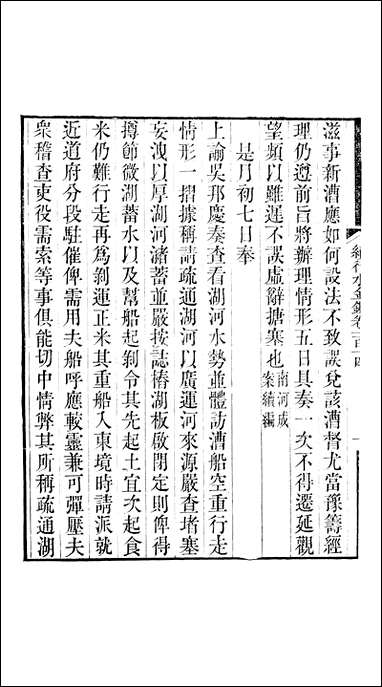 滋事新漕應如何設法不致誤兌該漕督尤當豫籌經
理仍遵前旨將辦理情形五日具奏一次不得遷延觀
望頻以雖遲不誤虛辭搪塞也南河成案續編
是月初七日奉
上諭吳邦慶奏查看湖河水勢並體訪漕船空重行走
情形一摺據稱請疏通湖河以廣運河來源嚴查堵塞
妄洩以厚湖河瀦蓄並嚴按誌樁湖板啟閉定則俾得
撙節微湖蓄水以及幫船起剝令其先起土宜次起食
米仍難行走再為剝運正米其重船入東境時請派就
近道府分段駐催俾需用夫船呼應較靈兼可彈壓夫
衆稽查吏役需索等事俱能切中情弊其所稱疏通湖
續行水金鑑卷一百十四
一